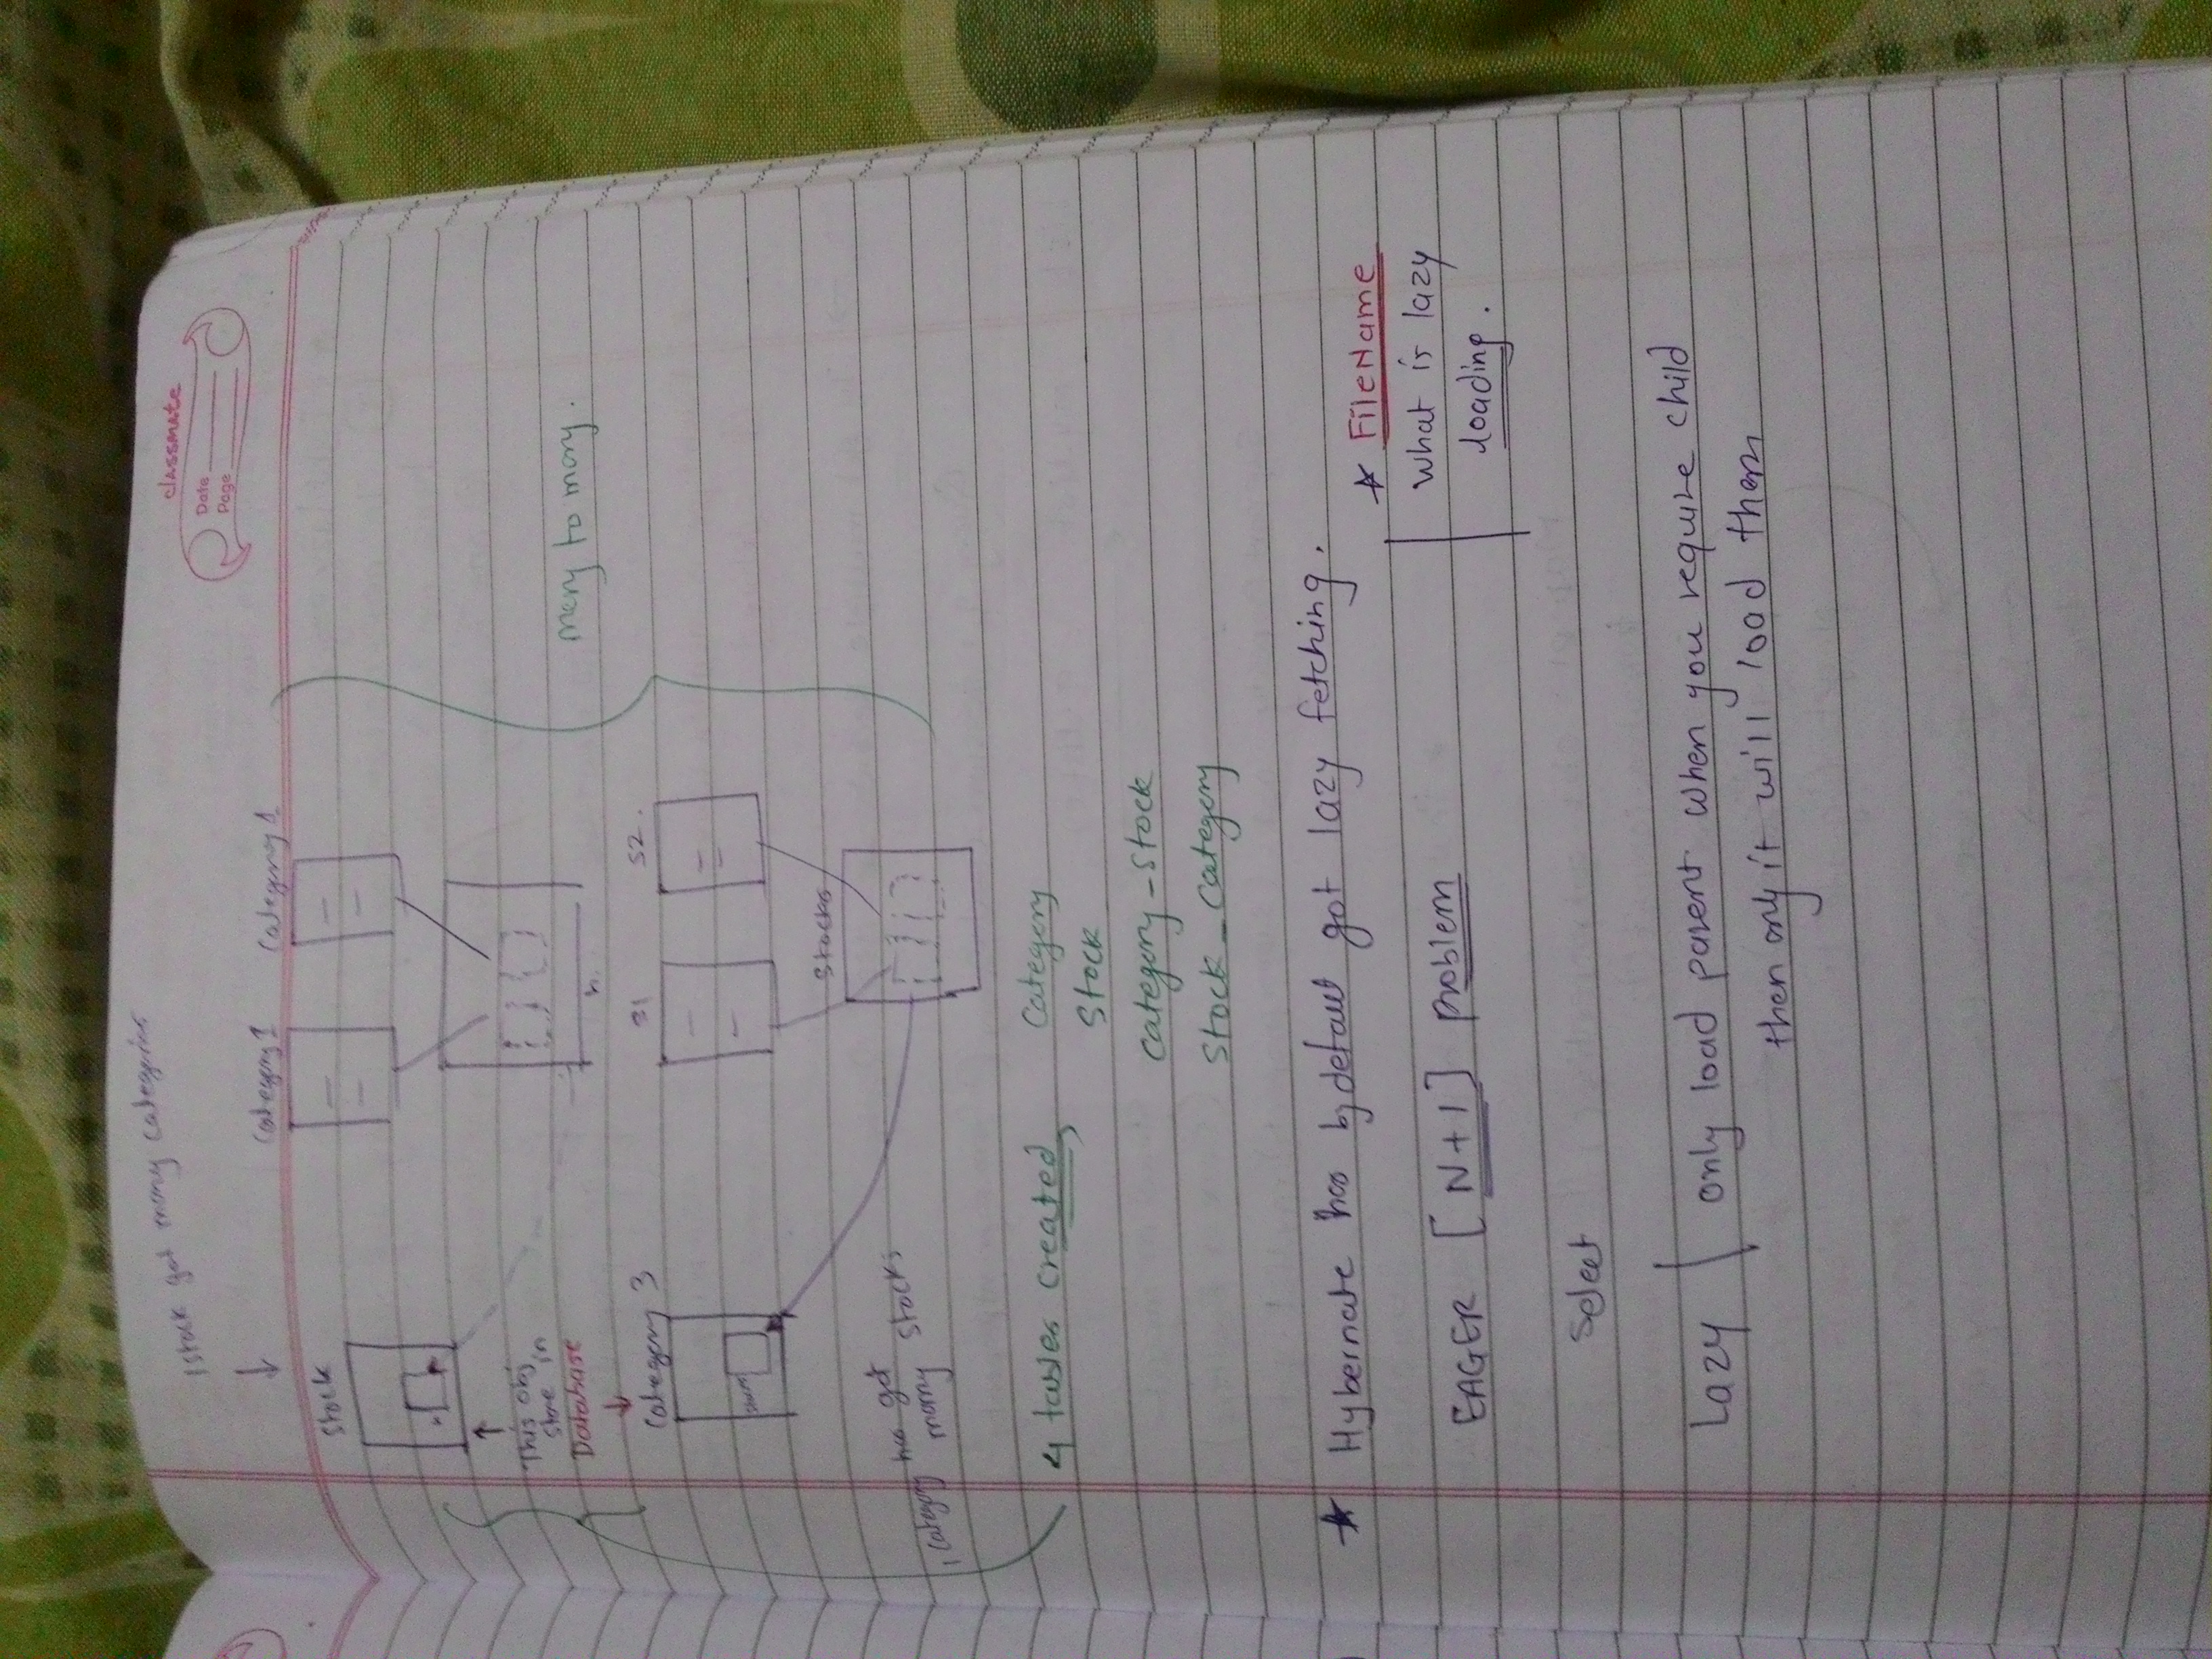 1 stock got many categories
classmate
Date
Page
Category 1
Category 1
Stock
This obj
store in
Database
many to many.
Category 3
S1
S2.
Stocks
1 Category has got
many stocks
4 tables created,
Category
Stock
Category_Stock
Stock_Category
Hybernate has by default got lazy fetching.
FileName
What is lazy
loading.
EAGER [N+1] problem
Select
Lazy | only load parent when you require child
then only it will load them